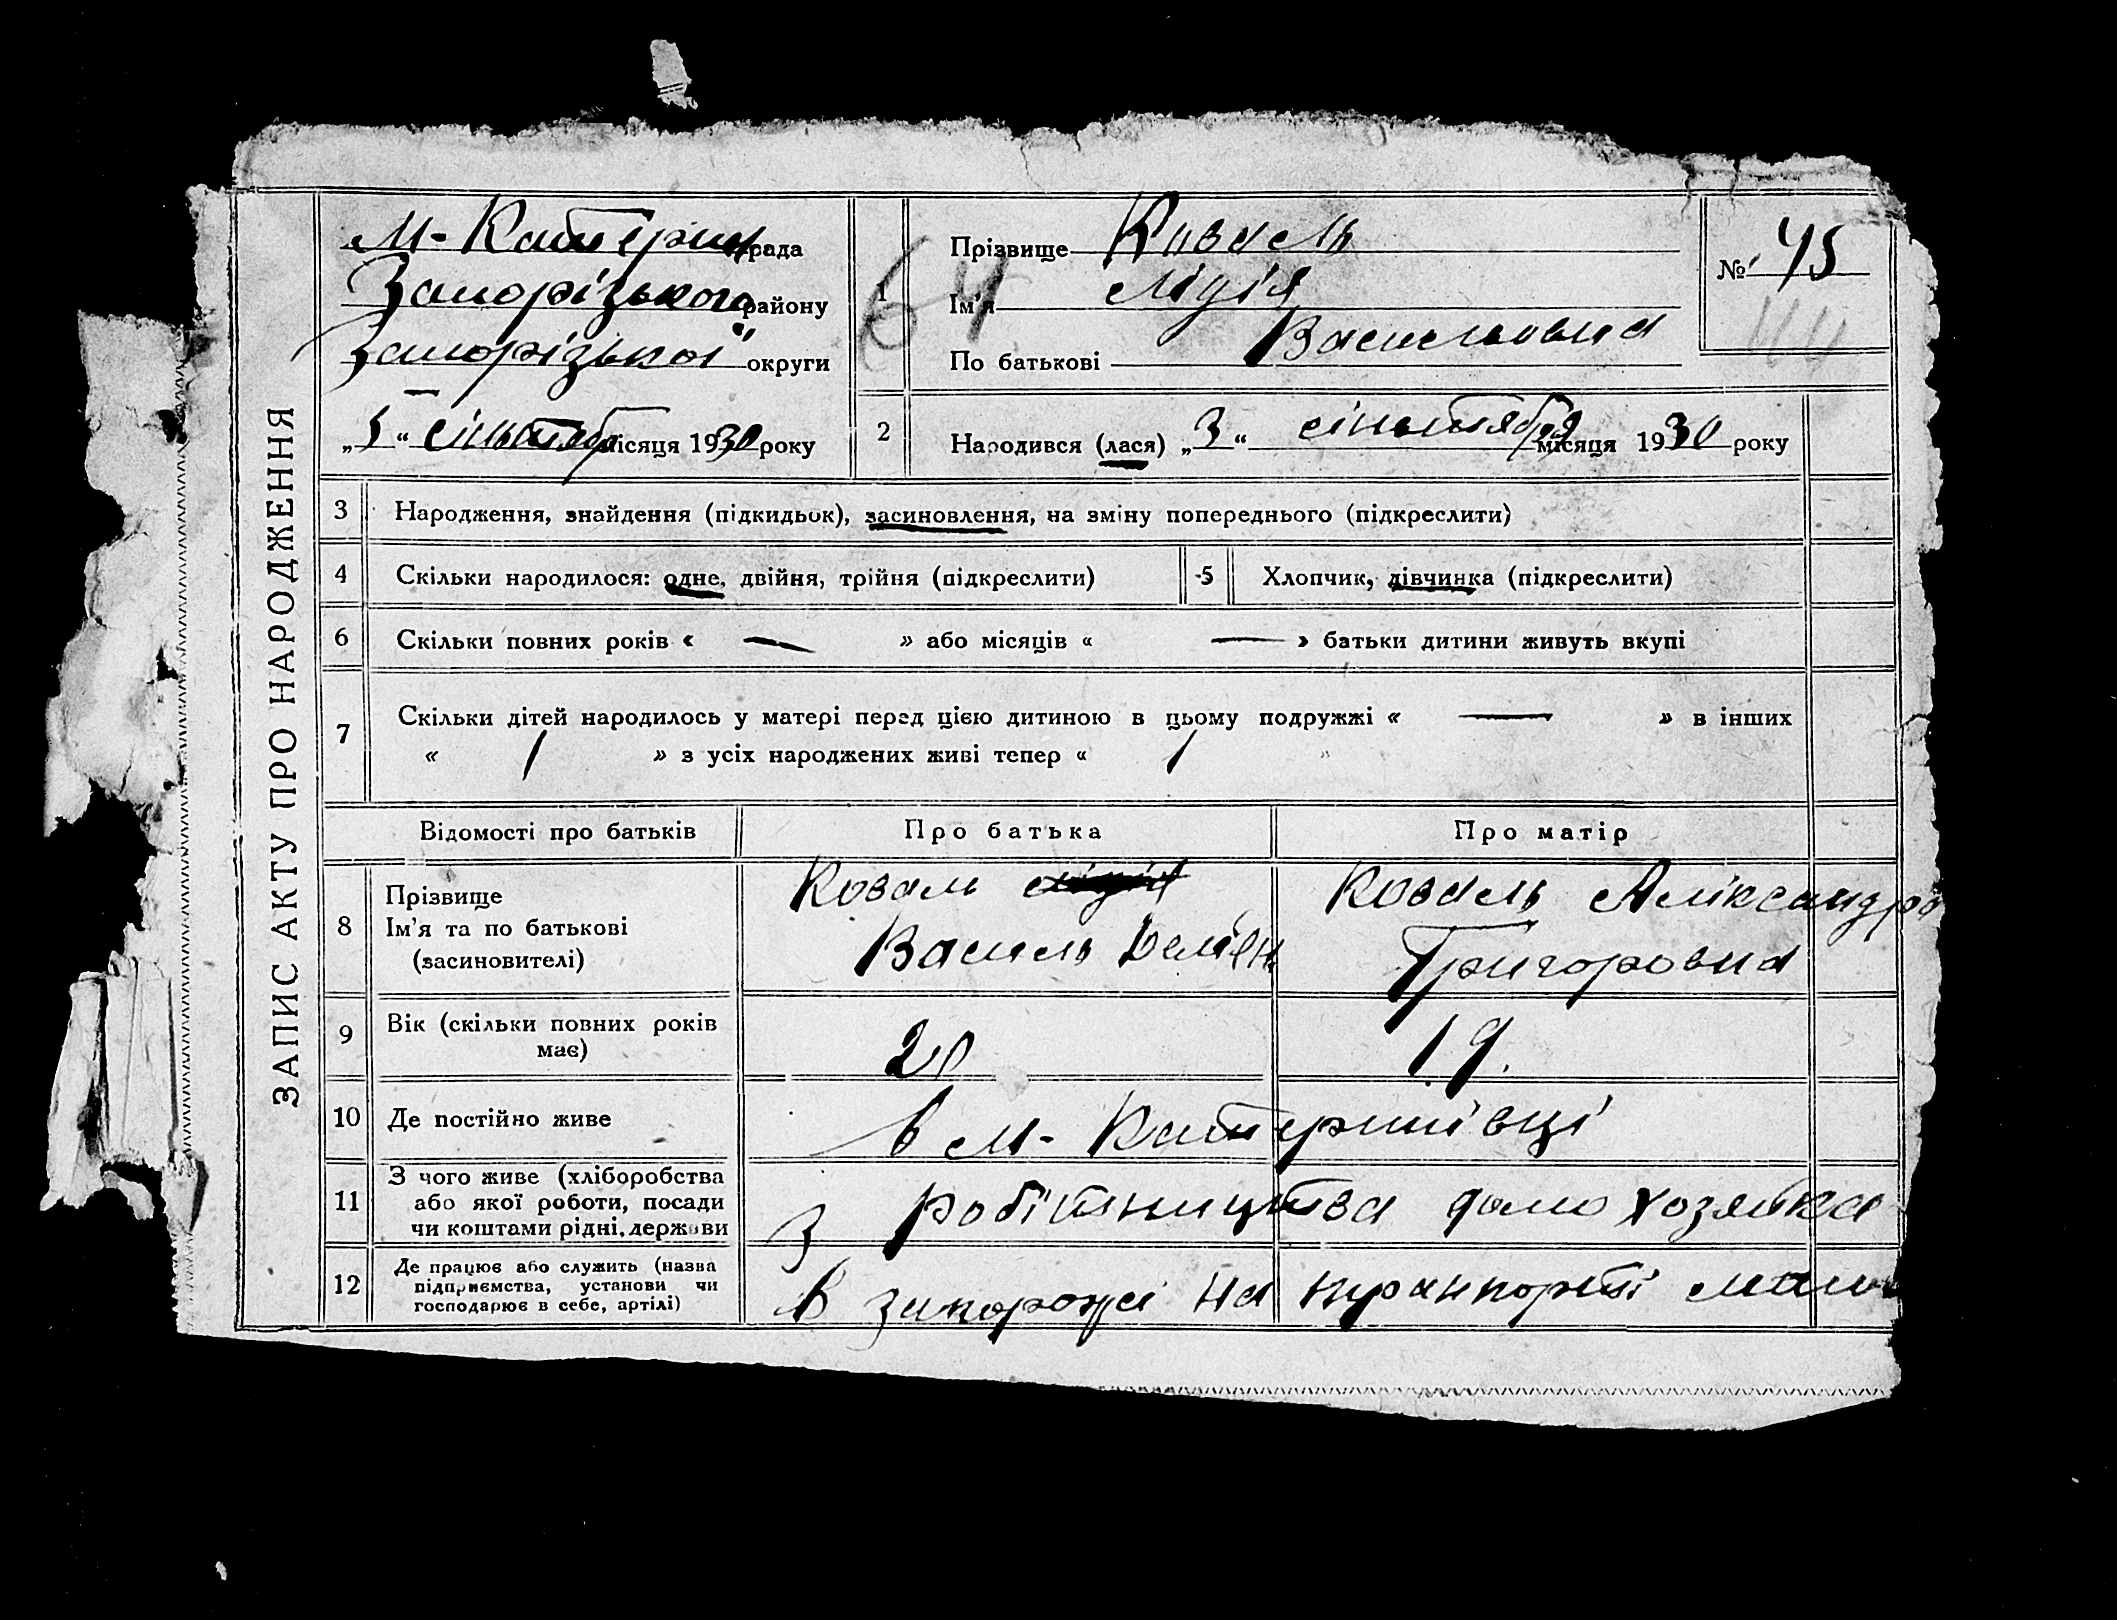 ЗАПИС АКТУ ПРО НАРОДЖЕННЯ
М-Катерин рада
Запорізького району
Запорізької округи
„5“ сіньтября місяця 1930 року
64
1
Прізвище Коваль
Ім'я Лідія
По батькові Васильовна
№ 45
44
2
Народився (лася) „3“ сіньтября місяця 1930 року
3 Народження, знайдення (підкидьок), засиновлення, на зміну попереднього (підкреслити)
4 Скільки народилося: одне, двійня, трійня (підкреслити)
5 Хлопчик, дівчинка (підкреслити)
6 Скільки повних років « — » або місяців « — » батьки дитини живуть вкупі
7 Скільки дітей народилось у матері перед цією дитиною в цьому подружжі « — » в інших
« 1 » з усіх народжених живі тепер « 1 "
Відомості про батьків Про батька Про матір
8 Прізвище
Ім'я та по батькові
(засиновителі)
Коваль
Василь Демян
Коваль Аліксандра
Григоровна
9 Вік (скільки повних років
має)
20
19.
10 Де постійно живе
в м- Катеринівці
11 З чого живе (хліборобства
або якої роботи, посади
чи коштами рідні, держави
З робітництва домохозяйка
12 Де працює або служить (назва
підприємства, установи чи
господарює в себе, артілі)
В запорожі на